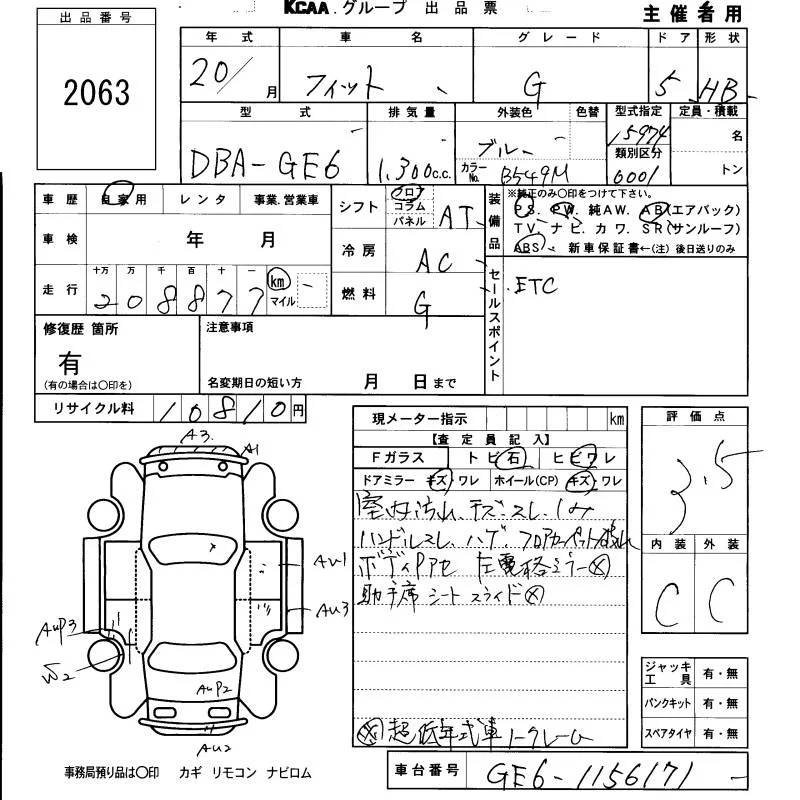 KCAA.グループ 出品票
主催者用
出品番号
2063
年式 車名 グレード ドア 形状
20/ 月 フィット G 5 HB
型式 排気量 外装色 色替 型式指定 定員・積載
DBA-GE6 1,300c.c. ブルー カラーNo. B549M 15974 名
類別区分 0001 トン
車歴 自家用 レンタ 事業.営業車
車検 年 月
走行 十万 万 千 百 十 一 km マイル
208877
シフト フロア コラム パネル AT
冷房 AC
燃料 G
装備品
※純正のみ〇印をつけて下さい。
P.S. P.W. 純AW. AB(エアバック)
TV. ナビ. カワ. SR(サンルーフ)
ABS 新車保証書←(注)後日送りのみ
セールスポイント
ETC
修復歴 箇所
有
(有の場合は〇印を)
注意事項
名変期日の短い方 月 日まで
リサイクル料 10810円
現メーター指示 km
【査定員記入】
Fガラス トビ石 ヒビワレ
ドアミラー キズ・ワレ ホイール(CP) キズ・ワレ
室内汚れ、キズ、スレ、シミ
ハンドルスレ、ハゲ、フロアカーペット破れ
ボディPアセ 左電格ミラー×
助手席シートスライド×
超低年式車ノークレーム
評価点
3.5
内装 外装
C C
ジャッキ工具 有・無
パンクキット 有・無
スペアタイヤ 有・無
A3.
A1
AU1
AU3
AUP3
W2
AUP2
AU2
事務局預り品は〇印 カギ リモコン ナビロム
車台番号 GE6-1156171